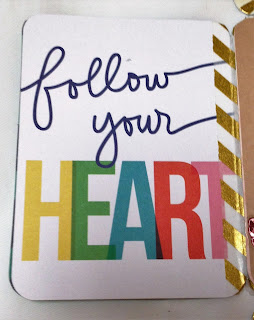 follow
your
HEART